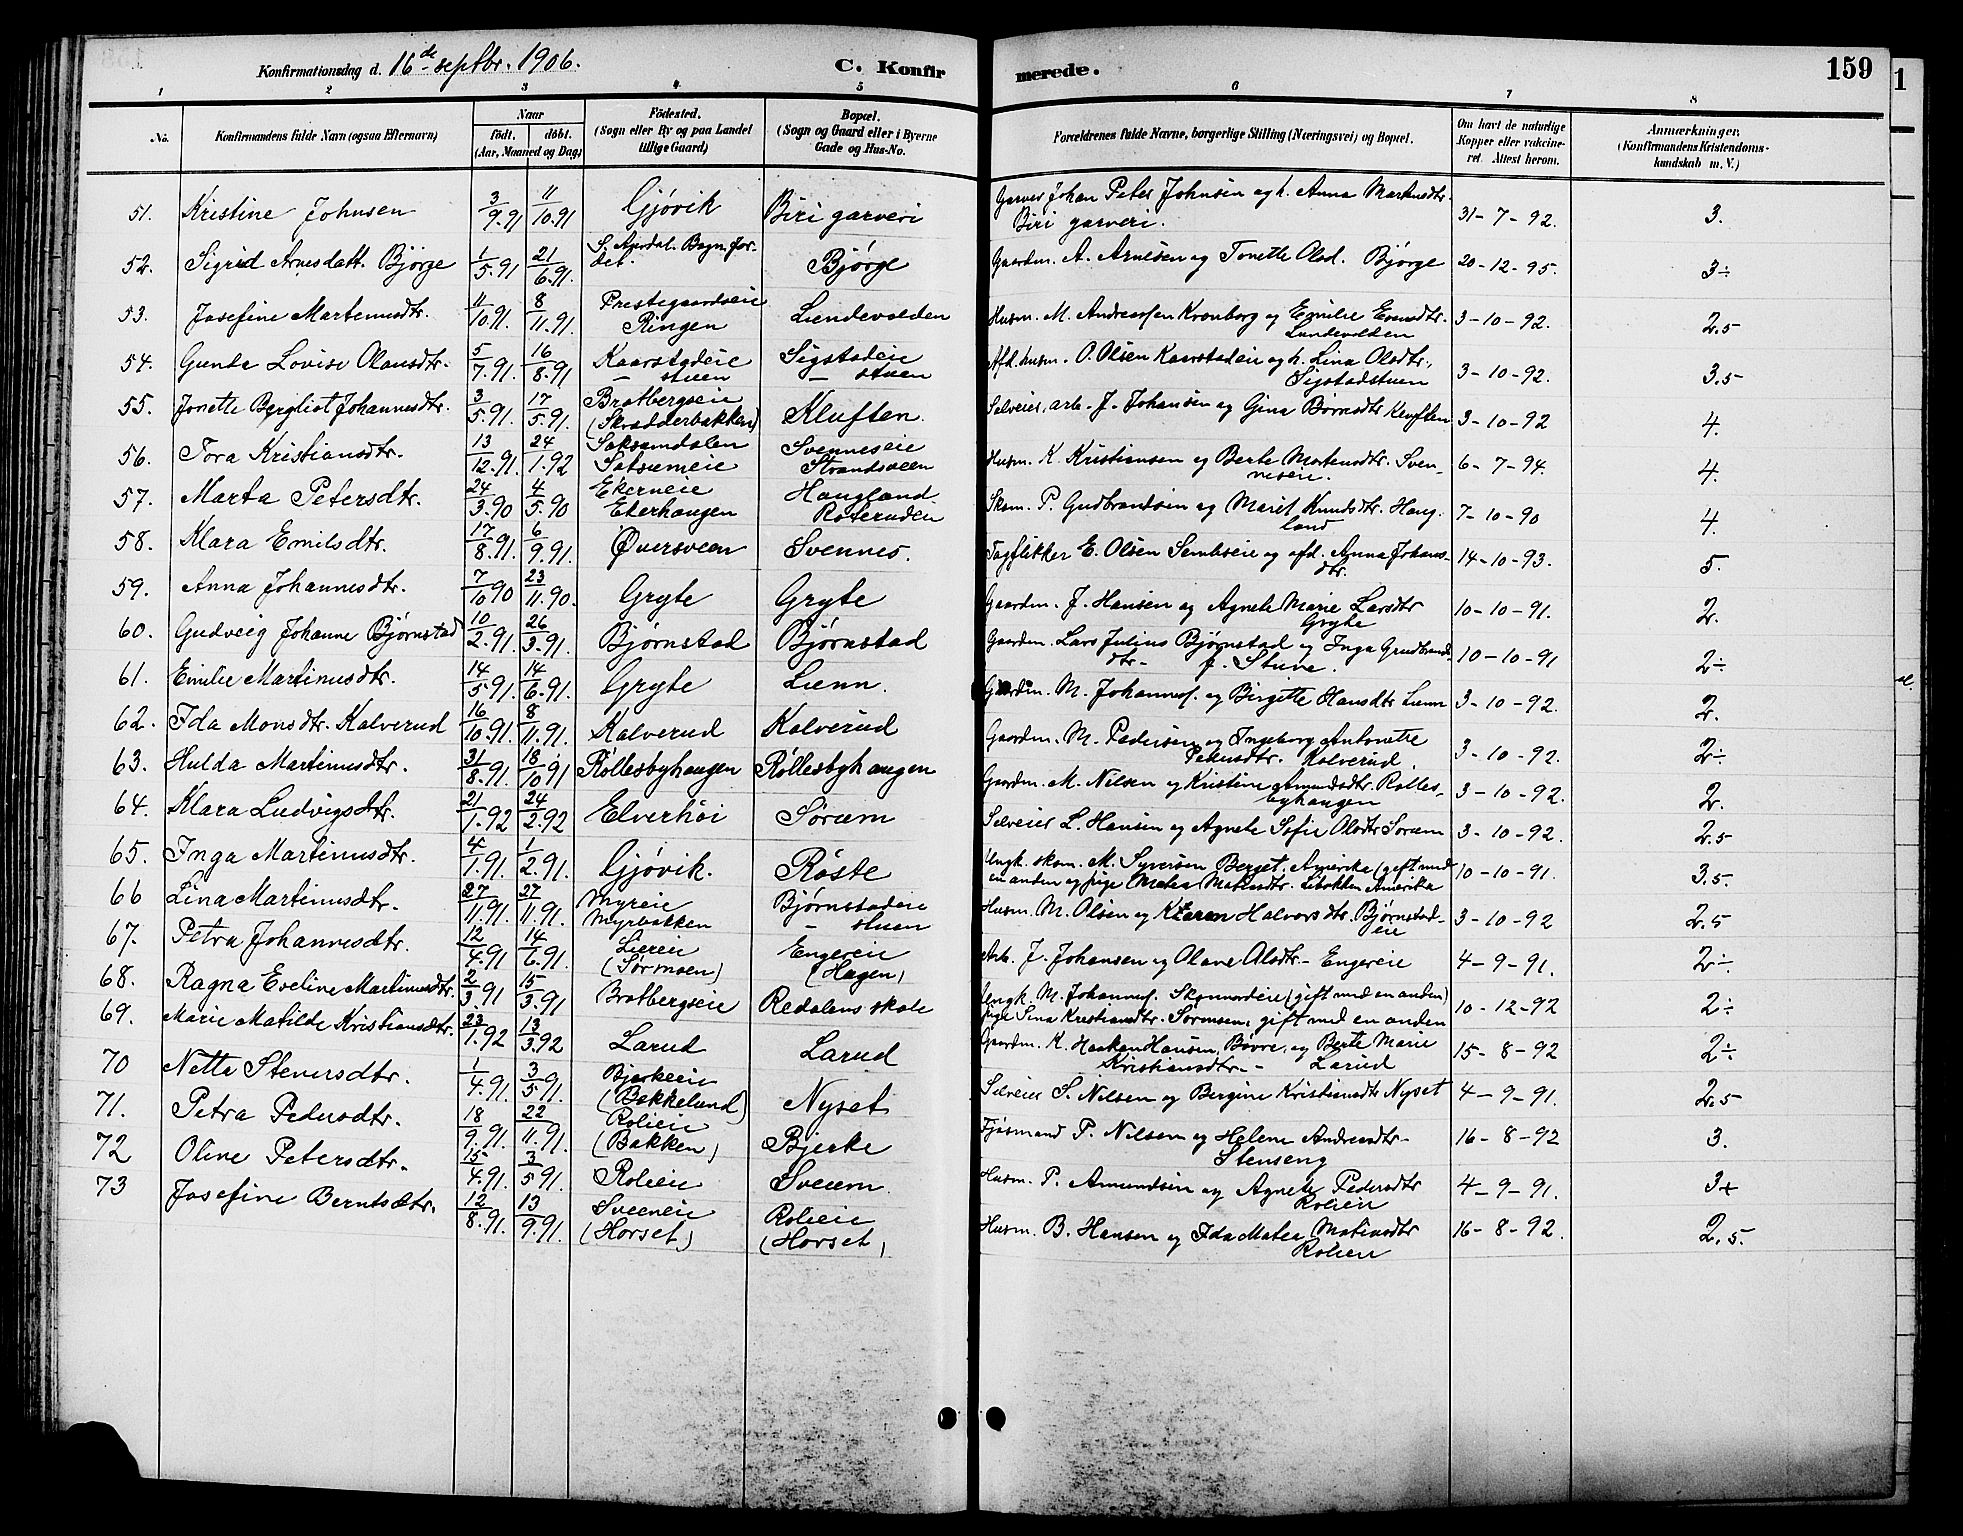 Konfirmationsdag d. 16de septbr. 1906. C. Konfirmerede. 159
1 2 3 4 5 6 7 8
No. Konfirmandens fulde Navn (ogsaa Efternavn) Naar födt. döbt. (Aar, Maaned og Dag) Födested. (Sogn eller By og paa Landet tillige Gaard) Bopæl. (Sogn og Gaard eller i Byerne Gade og Hus-No. Forældrenes fulde Navne, borgerlige Stilling (Næringsvei) og Bopæl. Om havt de naturlige Kopper eller vakcineret. Attest herom. Anmærkninger. (Konfirmandens Kristendomskundskab m. V.)
51. Kristine Johnsen 3/9.91 11/10.91 Gjøvik Biri garveri Garver Johan Peter Johnsen og h. Anna Martinsdtr. Biri garveri. 31-7-92. 3.
52. Sigrid Arnesdatt. Bjørge 1/5.91 21/6.91. S. Aurdal. Bagn Bjørge Gaardm. A. Arnesen og Tonette Olsd. Bjørge 20-12-95. 3÷
53. Josefine Martinusdtr. 11/10.91. 8/11.91 Prestegaardseie Ringen Lundevolden Husm. M. Andreassen Kronborg og Emilie Evensdtr. Lundevolden 3-10-92. 2.5
54. Gunda Lovise Olausdtr. 5/7.91. 16/8.91 Kaarstadeie - stuen Sigstadeie - stuen Afd. husm. O. Olsen Kaarstadeie og h. Lina Olsdtr. Sigstadstuen 3-10-92. 3.5
55. Jonette Bergliot Johannesdtr. 3/5.91. 17/5.91. Bratbergseie (Skrædderbakken) Kluften. Selveier, arb. J. Johansen og Gina Børresdtr Kluften 3-10-92 4.
56. Tora Kristiansdtr. 13/12.91. 24/1.92 Saksumdalen Saksumeie Svenneseie Strandsveen Husm. K. Kristiansen og Berte Mortensdtr. Svenneseie. 6-7-94. 4.
57. Marta Petersdtr. 24/3.90 4/5.90 Ekerneie Ekerhaugen Haugland Roteruden Skom. P. Gudbrandsen og Marit Knudsdtr. Haugland 7-10-90 4.
58. Klara Emilsdtr. 17/8.91. 6/9.91. Øversveen Svennes. Tagflikker E. Olsen Sembseie og afd. Anna Johansdtr. 14-10-93. 5.
59. Anna Johannesdtr. 7/10.90 23/11.90. Gryte Gryte Gaardm. J. Hansen og Agnete Marie Larsdtr Gryte 10-10-91. 2.
60. Gudveig Johanne Bjørnstad 10/2.91. 26/3.91. Bjørnstad Bjørnstad Gaardm. Lars Julius Bjørnstad og Inga Gudbrandsdtr. f. Stune. 10-10-91 2÷
61. Emilie Martinusdtr. 14/5.91. 14/6.91. Gryte Lunn. Gaardm. M. Johannes. og Birgitte Hansdtr Lunn 3-10-92. 2.
62. Ida Monsdtr. Kalverud 16/10.91. 8/11.91. Kalverud Kalverud Gaardm. M. Pedersen og Ingeborg Antonette Kalverud. 3-10-92. 2÷
63. Hulda Martinusdtr. 31/8.91. 18/10.91 Røllesbyhaugen Røllesbyhaugen Gaardm. M. Nilsen og Kristine Amundsdtr. Røllesbyhaugen 3-10-92. 2.
64. Klara Ludvigsdtr. 21/1.92 24/2.92 Elverhöi Söraem Selveier L. Hansen og Agnete Sofie Olsdtr Soraem 3-10-92. 2.5
65. Inga Martinusdtr. 4/1.91. 1/2.91. Gjøvik. Röste Ungk. skom. M. Syversen Berget, Amerika (gift med en anden og pige Matea Matiasdtr. Amerika 10-10-91. 3.5.
66 Lina Martinusdtr. 27/11.91. 27/11.91. Myreie Myrbakken Bjørnstadeie - stuen Husm. M. Olsen og Karen Halvorsdtr. Bjørnstadeie 3-10-92 2.5
67. Petra Johannesdtr. 12/4.91 14/6.91. Liereie (Sörmoen) Engereie (Hagen) Arb. J. Johansen og Olave Olsdtr. Engereie 4-9-91. 2÷
68. Ragna Eveline Martinusdtr. 2/3.91 15/3.91 Bratbergseie Redalens skole Ungk. M. Johannes. (gift med en anden) pige Lina Kristiansdtr. Sörmoen, gift med en anden 10-12-92 2÷
69. Marie Matilde Kristiansdtr. 23/1.92 13/3.92 Larud Larud Gaardm. K. Haaken Hansen, Bövre, og Berte Marie Kristiansdtr. - Larud 15-8-92 2÷
70 Nette Stenersdtr. 1/4.91. 3/5.91. Bjerkeeie (Bakkelund) Nyset Selveier S. Nilsen og Bergine Kristiansdtr Nyset 4-9-91. 2.5
71. Petra Pedersdtr. 18/9.91. 22/11.91. Rolieie (Bakken) Bjerke Fjøsmand P. Nilsen og Helene Andreasdtr. Stenseng 16-8-92 3.
72 Oline Petersdtr. 15/4.91. 3/5 91. Rolieie Sveum Husm. P. Amundsen og Agnete Pedersdtr Rolien 4-9-91. 3+
73 Josefine Berntsdtr. 12/8.91. 13/9.91. Sveeneie (Horset) Rolieie (Horset) Husm. B. Hansen og Ida Matea Matiasdtr Rolien 16-8-92. 2.5.